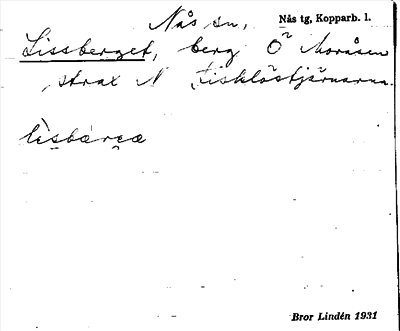 Nås sn, Nås tg, Kopparb. l.
Lissberget, berg Ö Moråsen
strax N Fisklöstjärnarna.
lìsbærɛæ
Bror Lindén 1931